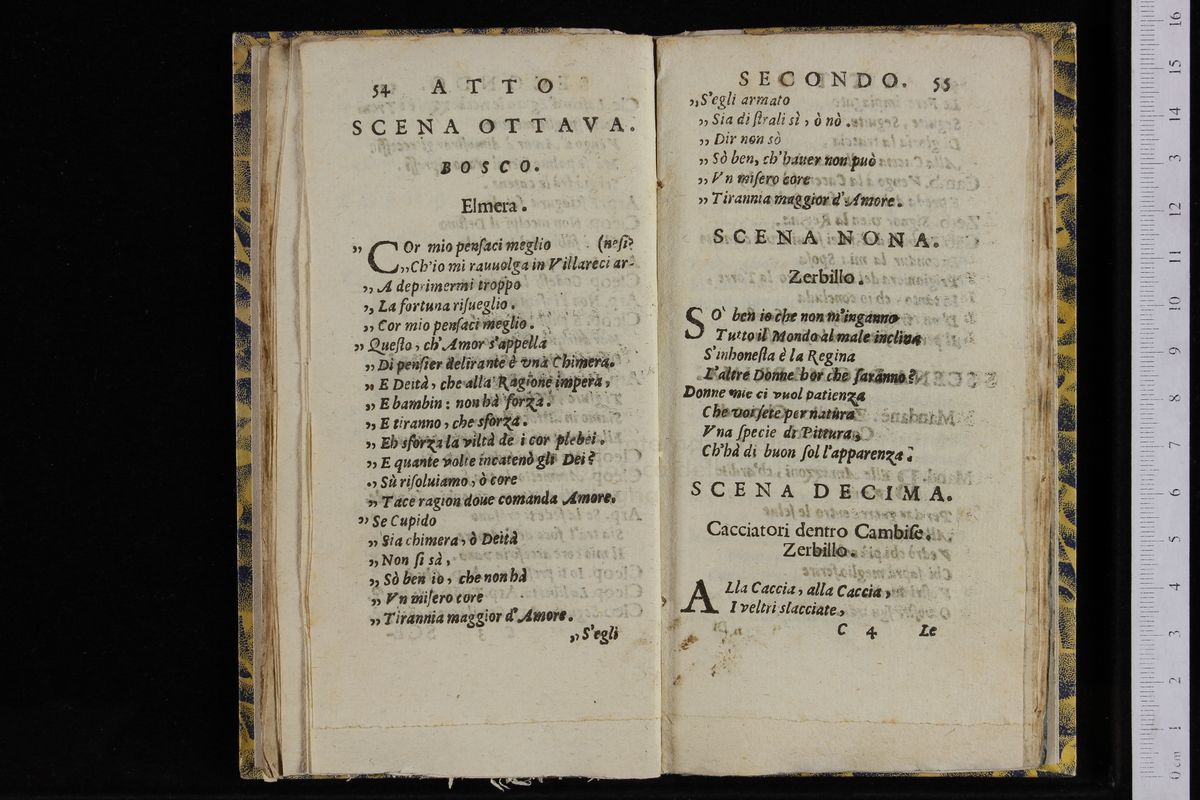 54 ATTO
SCENA OTTAVA.
BOSCO.
Elmera.
„ COr mio penſaci meglio (neſi?
„Ch'io mi rauuolga in Villareci ar-
„ A deprimermi troppo
„ La fortuna riſueglio.
„ Cor mio penſaci meglio.
„ Queſto, ch'Amor s'appella
„ Di penſier delirante è vna Chimera.
„ E Deità, che alla Ragione impera,
„ E bambin: non hà forza.
„ E tiranno, che sforza.
„ Eh sforza la viltà de i cor plebei.
„ E quante volte incatenò gli Dei?
„ Sù riſoluiamo, ò core
„ Tace ragion doue comanda Amore.
„ Se Cupido
„ Sia chimera, ò Deità
„ Non ſi sà,
„ Sò ben io, che non hà
„ Vn miſero core
„ Tirannia maggior d'Amore.
„ S'egli
SECONDO. 55
„S'egli armato
„ Sia di ſtrali sì, ò nò.
„ Dir non sò
„ Sò ben, ch'hauer non può
„ Vn miſero core
„ Tirannia maggior d'Amore.
SCENA NONA.
Zerbillo.
SO' ben io che non m'inganno
Tutto il Mondo al male inclina
S'inhoneſta è la Regina
L'altre Donne hor che faranno?
Donne me ci vuol patienza
Che voi ſete per natura
Vna ſpecie di Pittura,
Ch'hà di buon ſol l'apparenza.
SCENA DECIMA.
Cacciatori dentro Cambiſe.
Zerbillo.
ALla Caccia, alla Caccia,
I veltri slacciate,
C 4 Le